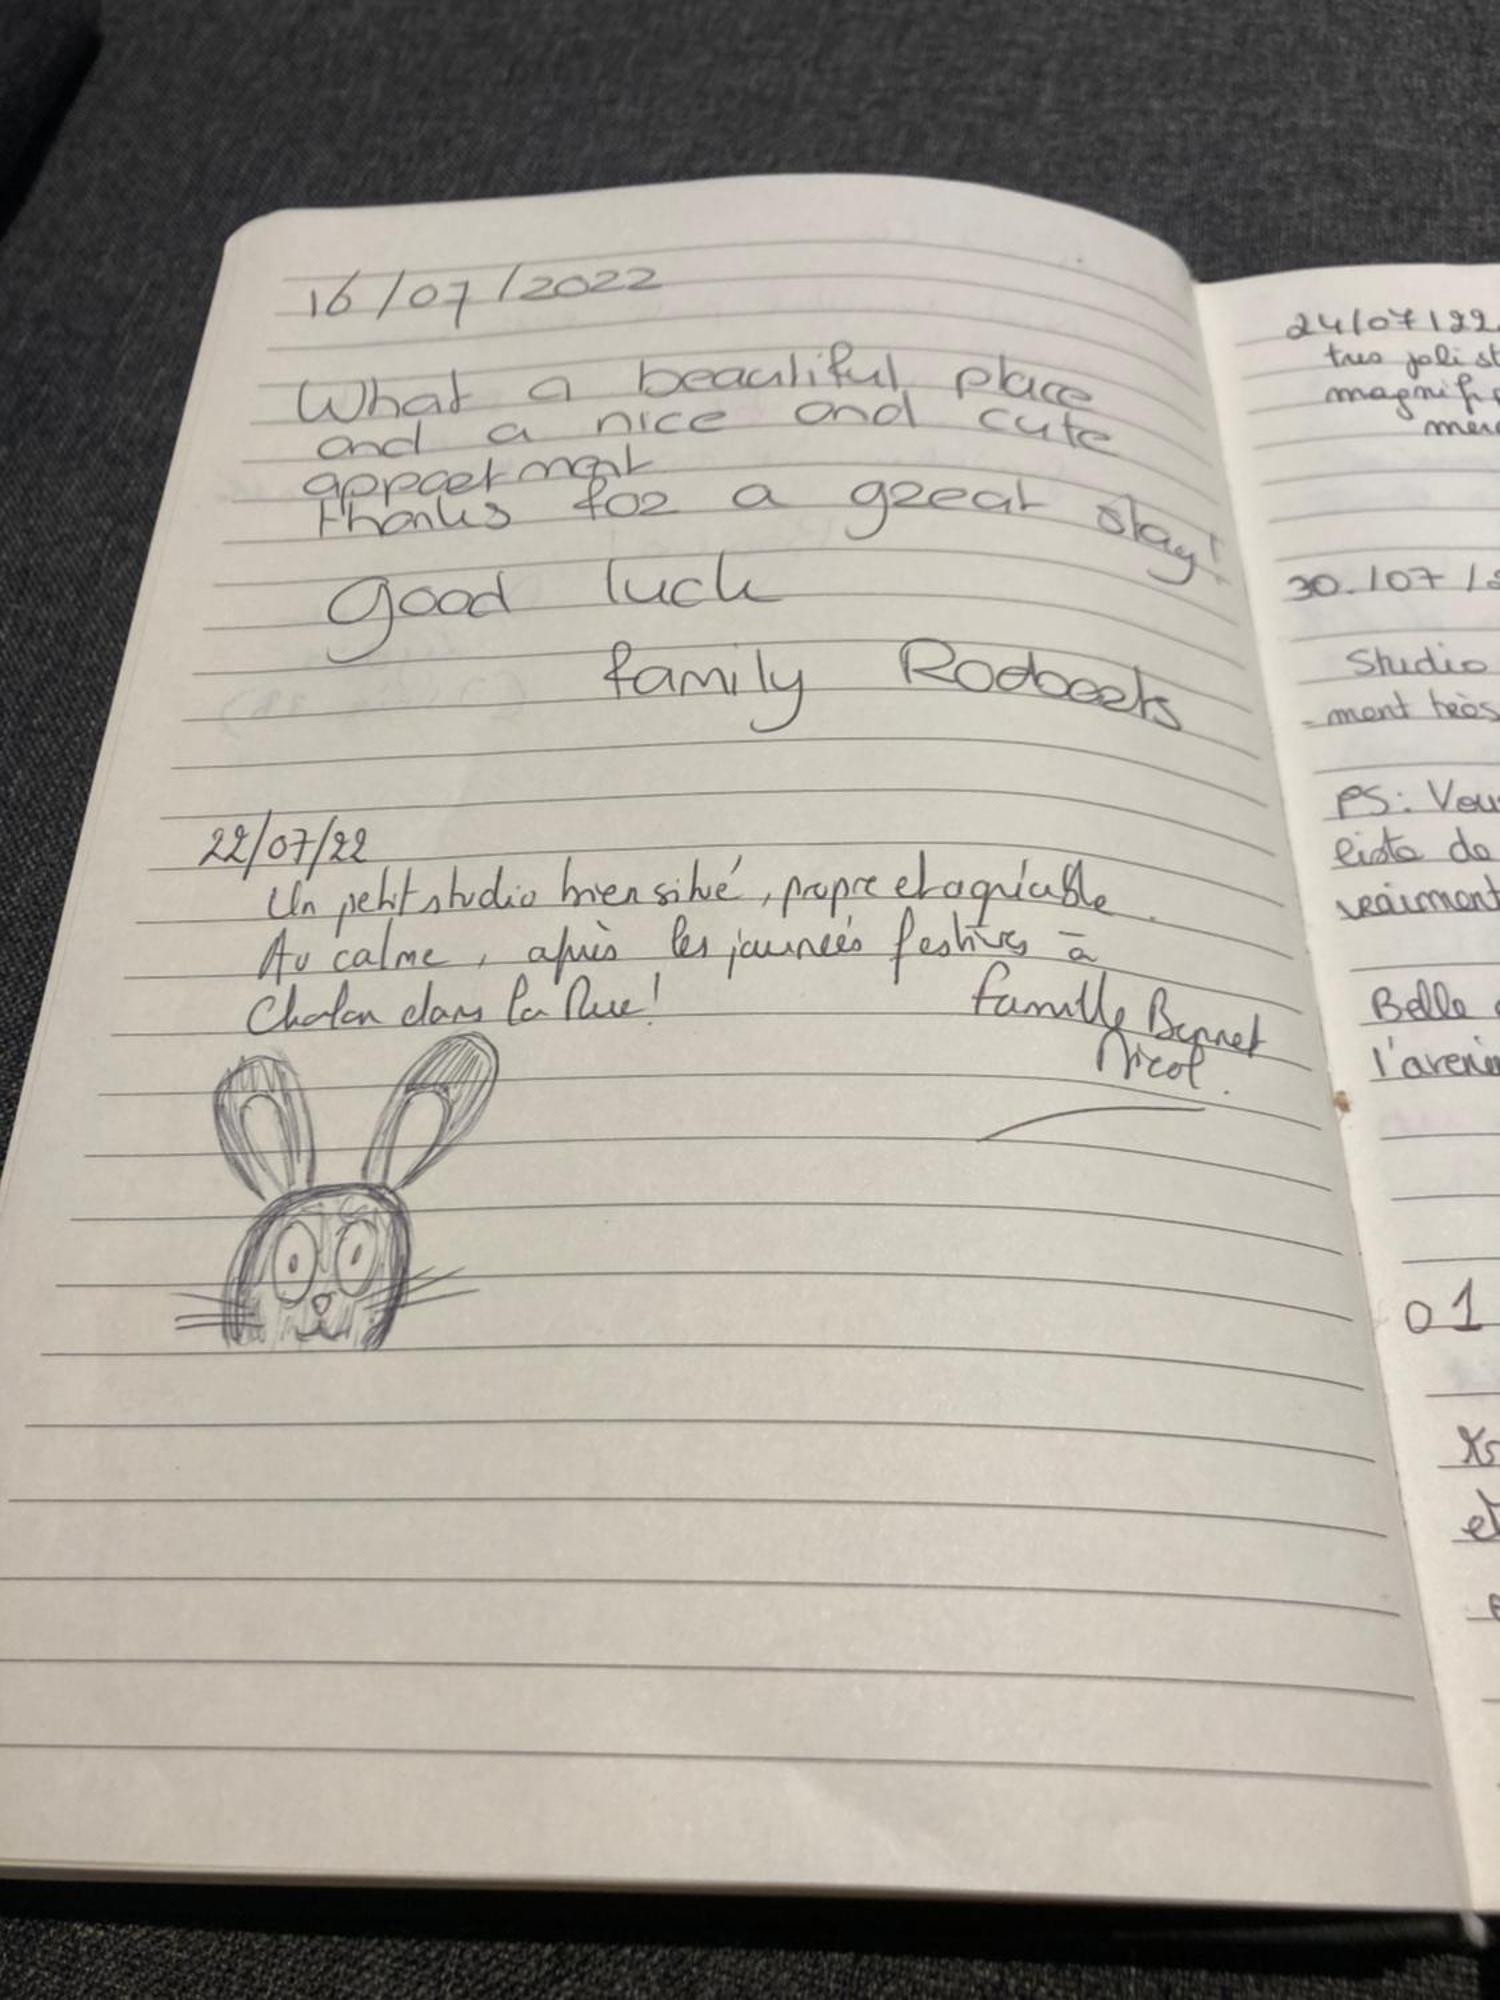 16/07/2022
What a beautiful place
and a nice and cute
appartment
thanks for a great stay!
good luck
family Rodoerts
22/07/22
Un petit studio bien situé, propre et agréable.
Au calme, après les journées festives à
Chalon dans la Rue!
famille Bonnet
Nicol.
24/07/22
très joli st
magnif
merc
30./07/2
Studio
-ment très
PS: Vous
liste de
vraiment
Belle
l'avenir
01
et